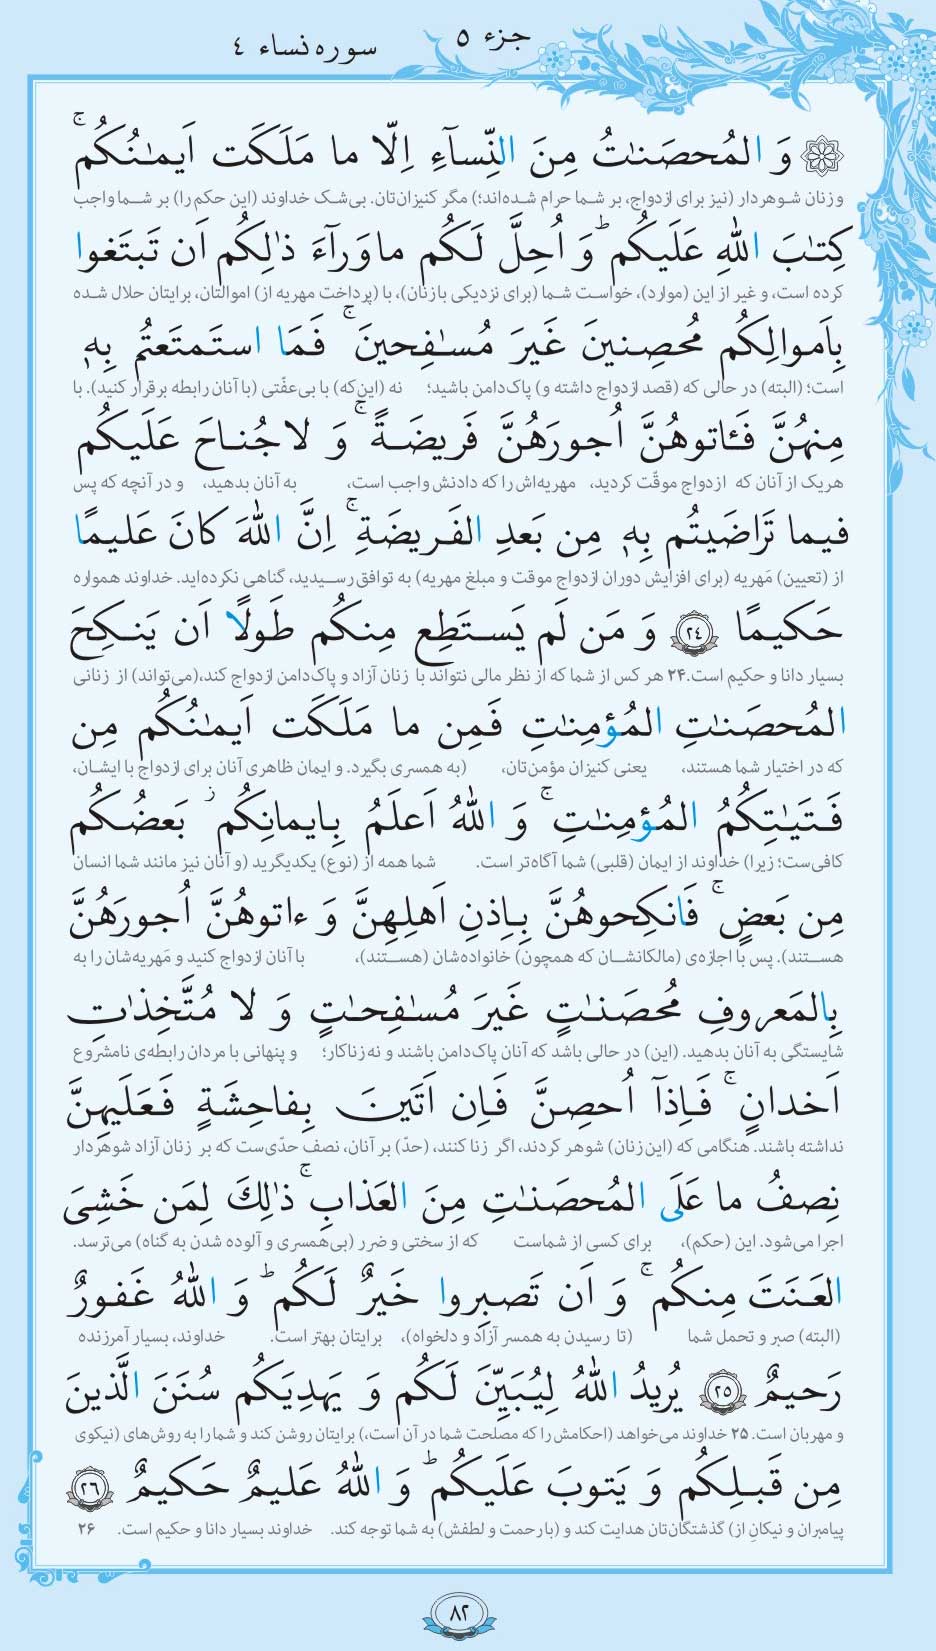 جزء ۵
سوره نساء ۴
وَ المُحصَنٰتُ مِنَ النِّسآءِ اِلّا ما مَلَكَت اَيمٰنُكُم ۚ
و زنان شوهردار (نیز برای ازدواج، بر شما حرام شده‌اند؛) مگر کنیزان‌تان. بی‌شک خداوند (این حکم را) بر شما واجب
كِتٰبَ اللّٰهِ عَلَيكُم ۚ وَ اُحِلَّ لَكُم ماوَرآءَ ذٰلِكُم اَن تَبتَغوا
کرده است، و غیر از این (موارد)، خواست شما (برای نزدیکی با زنان)، با (پرداخت مهریه از) اموالتان، برایتان حلال شده
بِاَموالِكُم مُحصِنينَ غَيرَ مُسٰفِحينَ ۚ فَمَا استَمتَعتُم بِهٖ
است؛ (البته) در حالی که (قصد ازدواج داشته و) پاک‌دامن باشید؛ نه (این‌که) با بی‌عفّتی (با آنان رابطه برقرار کنید). با
مِنهُنَّ فَـٔاتوهُنَّ اُجورَهُنَّ فَريضَةً ۚ وَ لاجُناحَ عَلَيكُم
هریک از آنان که ازدواج موقّت کردید، مهریه‌اش را که دادنش واجب است، به آنان بدهید، و در آنچه که پس
فيما تَراضَيتُم بِهٖ مِن بَعدِ الفَريضَةِ ۚ اِنَّ اللّٰهَ كانَ عَليمًا
از (تعیین) مَهریه (برای افزایش دوران ازدواج موقت و مبلغ مهریه) به توافق رسیدید، گناهی نکرده‌اید. خداوند همواره
حَكيمًا ﴿٢٤﴾ وَ مَن لَم يَستَطِع مِنكُم طَولًا اَن يَنكِحَ
بسیار دانا و حکیم است. ۲۴ هر کس از شما که از نظر مالی نتواند با زنان آزاد و پاک‌دامن ازدواج کند، (می‌تواند) از زنانی
المُحصَنٰتِ المُؤمِنٰتِ فَمِن ما مَلَكَت اَيمٰنُكُم مِن
که در اختیار شما هستند، یعنی کنیزان مؤمن‌تان، (به همسری بگیرد. و ایمان ظاهری آنان برای ازدواج با ایشان،
فَتَيٰتِكُمُ المُؤمِنٰتِ ۚ وَ اللّٰهُ اَعلَمُ بِايمانِكُم ۚ بَعضُكُم
کافی‌ست؛ زیرا) خداوند از ایمان (قلبی) شما آگاه‌تر است. شما همه از (نوع) یکدیگرید (و آنان نیز مانند شما انسان
مِن بَعضٍ ۚ فَانكِحوهُنَّ بِاِذنِ اَهلِهِنَّ وَ ءاتوهُنَّ اُجورَهُنَّ
هستند). پس با اجازه‌ی (مالکانشان که همچون) خانواده‌شان (هستند)، با آنان ازدواج کنید و مَهریه‌شان را به
بِالمَعروفِ مُحصَنٰتٍ غَيرَ مُسٰفِحٰتٍ وَ لا مُتَّخِذٰتِ
شایستگی به آنان بدهید. (این) در حالی باشد که آنان پاک‌دامن باشند و نه زناکار؛ و پنهانی با مردان رابطه‌ی نامشروع
اَخدانٍ ۚ فَاِذآ اُحصِنَّ فَاِن اَتَينَ بِفاحِشَةٍ فَعَلَيهِنَّ
نداشته باشند. هنگامی که (این زنان) شوهر کردند، اگر زنا کنند، (حدّ) بر آنان، نصف حدّی‌ست که بر زنان آزاد شوهردار
نِصفُ ما عَلَى المُحصَنٰتِ مِنَ العَذابِ ۚ ذٰلِكَ لِمَن خَشِىَ
اجرا می‌شود. این (حکم)، برای کسی از شماست که از سختی و ضرر (بی‌همسری و آلوده شدن به گناه) می‌ترسد.
العَنَتَ مِنكُم ۚ وَ اَن تَصبِروا خَيرٌ لَكُم ۗ وَ اللّٰهُ غَفورٌ
(البته) صبر و تحمل شما (تا رسیدن به همسر آزاد و دلخواه)، برایتان بهتر است. خداوند، بسیار آمرزنده
رَحيمٌ ﴿٢٥﴾ يُريدُ اللّٰهُ لِيُبَيِّنَ لَكُم وَ يَهدِيَكُم سُنَنَ الَّذينَ
و مهربان است. ۲۵ خداوند می‌خواهد (احکامش را که مصلحت شما در آن است،) برایتان روشن کند و شما را به روش‌های (نیکوی
مِن قَبلِكُم وَ يَتوبَ عَلَيكُم ۗ وَ اللّٰهُ عَليمٌ حَكيمٌ ﴿٢٦﴾
پیامبران و نیکانِ از) گذشتگان‌تان هدایت کند و (با رحمت و لطفش) به شما توجه کند. خداوند بسیار دانا و حکیم است. ۲۶
۸۲